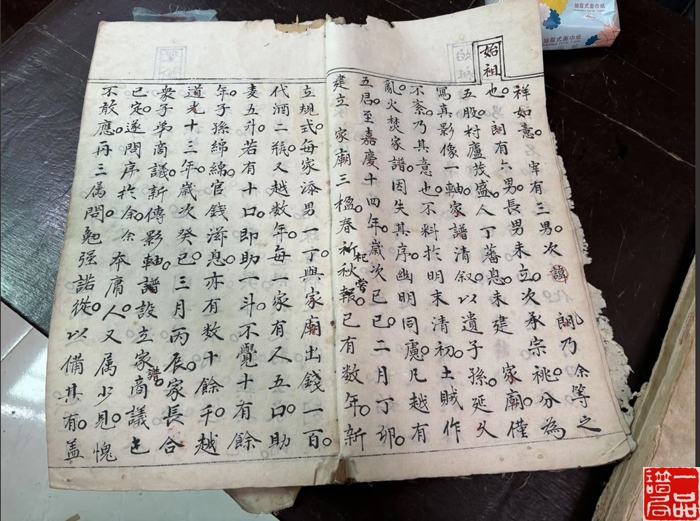 始祖
祥如意。宰有三男。次諱 朗乃余等之
始祖也。朗有六男。長男未立。次承宗祧。分為
五股。村廬茂盛。人丁蕃息。未建 家廟。僅
寫真影像一軸。家譜清叙。以遺子孫。延久
不紊。乃其意也。不料於明末清初。土賊作
亂。火焚家譜。因失其序。幽明同慮。凡越有
五居。至嘉慶十四年。歲次己巳。二月丁卯。
建立 家廟三楹。春祈秋報。已有数年。新
祀嘗
立規式。每家添男一丁。與家廟出錢一百。
代酒二瓶。又越数年。每一家有人五口助
麦五升。若有十口。即助一斗。不覺十有餘
年。子孫綿綿。官錢滋息。亦有数十餘千。越
道光十三年。歲次癸巳。三月丙辰。家長合
衆子孝商議。新傳影軸。譜設立家商議已
譜
已定。遂問序於余。余本庸人。又属少見。愧
不敢應。再三属問。勉强諾從。以備其有。盖
抽取式面巾纸
一品譜局